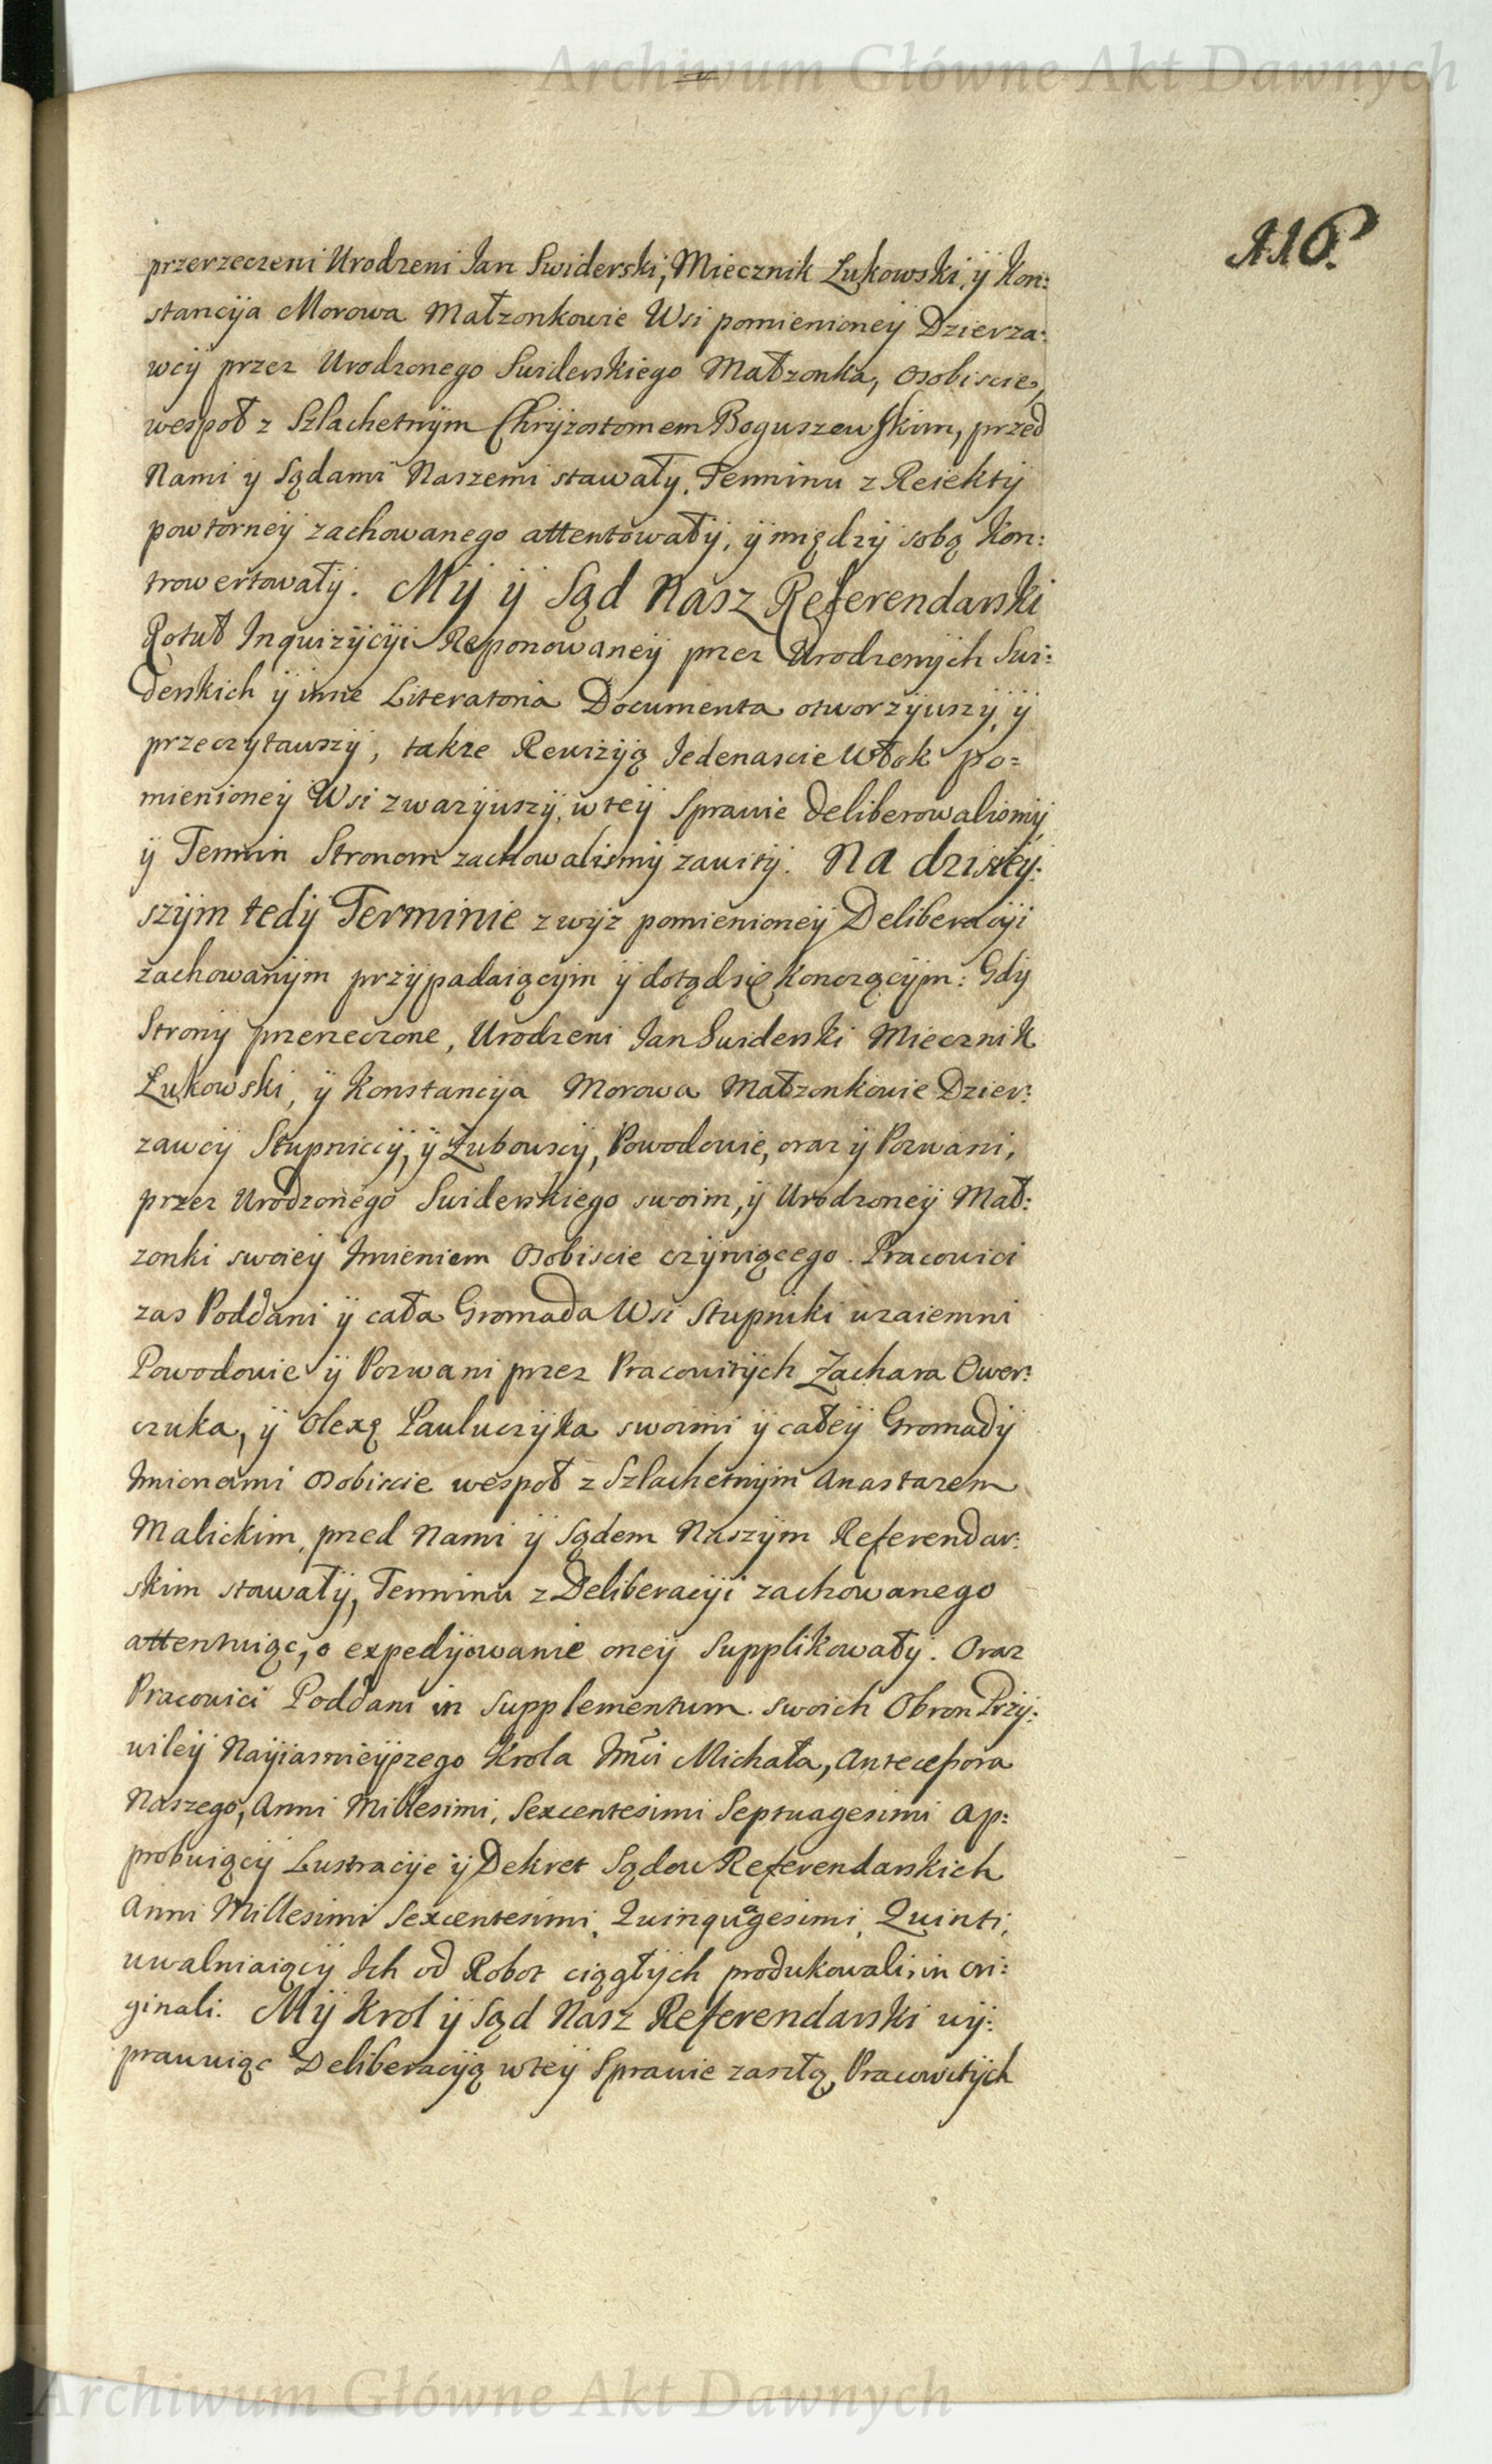 Archiwum Główne Akt Dawnych
116.
przerzeczeni Urodzeni Jan Swiderski, Miecznik Łukowski, ÿ Kon:
stancÿa Morowa Małzonkowie Wsi pomienioneÿ Dzierza:
wcÿ przez Urodzonego Swiderskiego Małzonka, osobiscie,
wespoł z Szlachetnÿm Chrÿzostomem Boguszewskim, przed
Nami ÿ Sądami Naszemi stawałÿ, Terminu z Reiektÿ
powtorneÿ zachowanego attentowałÿ, ÿ międzÿ sobą kon:
trowertowałÿ. Mÿ ÿ Sąd Nasz Referendarski
Rotuł InquizÿcÿiReponowaneÿ przez Urodzonÿch Swi:
derskich ÿ inne Literatoria Documenta otworzÿwszÿ, ÿ
przeczÿtawszÿ, takze Rewizÿą Jedenascie Włok po=
mienioneÿ Wsi zwazÿwszÿ, w teÿ Sprawie deliberowalismÿ,
ÿ Termin Stronom zachowalismÿ zawitÿ. Na dzisieÿ:
szÿm tedÿ Terminie z wÿz pomienioneÿ Deliberacÿi
zachowanÿm przÿpadaiącÿm ÿ dotąd się konczącÿm: Gdÿ
Stronÿ przerzeczone, Urodzeni Jan Swiderski Miecznik
Łukowski, ÿ Konstancÿa Morowa Małzonkowie Dzier:
zawcÿ Stupniccÿ, ÿ Zubowscÿ, Powodowie, oraz ÿ Pozwani,
przez Urodzonego Swiderskiego swoim, ÿ Urodzoneÿ Mał:
zonki swoieÿ Imieniem osobiscie czÿniącego. Pracowici
zas Poddani ÿ cała Gromada Wsi Stupniki wzaiemni
Powodowie ÿ Pozwani przez Pracowitÿch Zachara Ower:
czuka, ÿ Olexę Pauluczÿka swoimi ÿ całeÿ Gromadÿ
Imionami osobiscie wespoł z Szlachetnÿm Anastazem
Malickim, przed Nami ÿ Sądem Naszÿm Referendar:
skim stawałÿ, Terminu z Deliberacÿi zachowanego
attentuiąc, o expedÿowanie oneÿ Supplikowałÿ. Oraz
Pracowici Poddani in Supplementum swoich Obron Przÿ:
wileÿ Naÿiasnieÿszego Krola Jmci Michała, Antecessora
Naszego, Anni Millesimi, Sexcentesimi Septuagesimi ap:
probuiącÿ Lustracÿe ÿ Dekret Sądow Referendarskich
Anni Millesimi Sexcentesimi, Quinquagesimi, Quinti,
uwalniaiącÿ Ich od Robot ciągłÿch produkowali, in ori:
ginali. Mÿ Krol ÿ Sąd Nasz Referendarski uÿ:
prawuiąc Deliberacÿą w teÿ Sprawie zaszłą, Pracowitÿch
Archiwum Główne Akt Dawnych